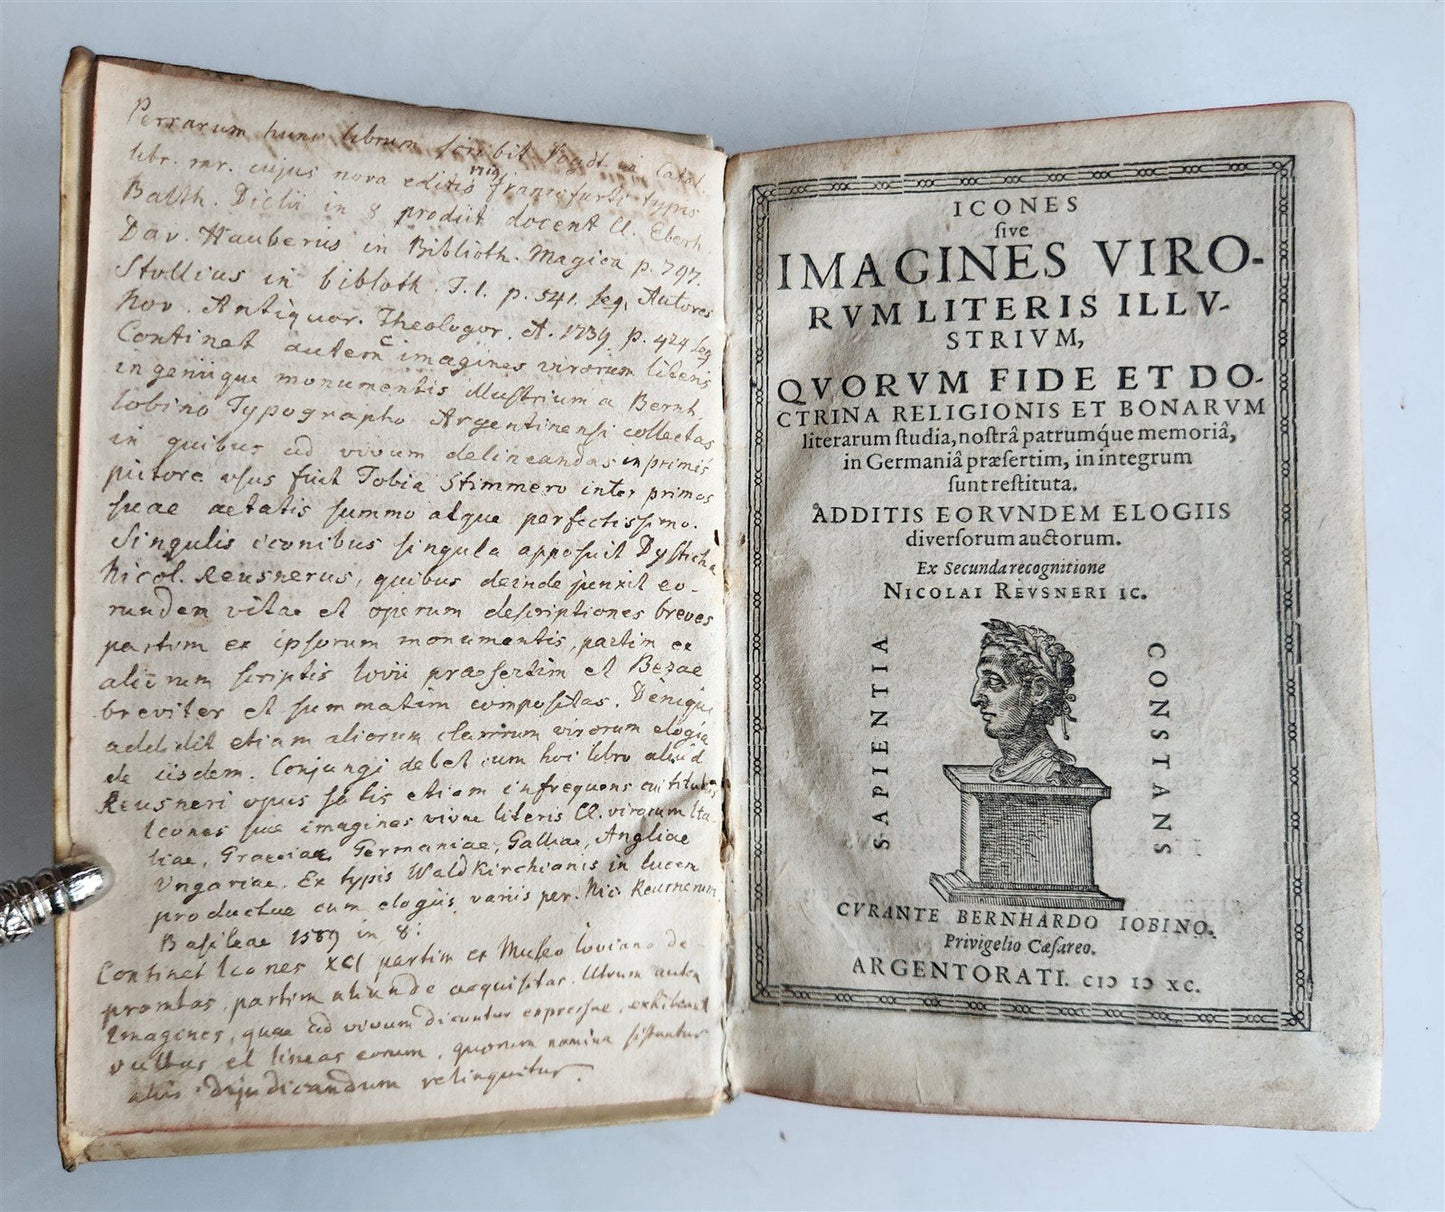 Perrarum hunc librum scribit Vogt. in Catal.
libr. rar. cujus nova editio 1719 Francofurti typis
Balth. Diclii in 8 prodiit docent Cl. Eberh.
Dav. Hauberus in Biblioth. Magica p. 797.
Stollius in biblioth. T. 1. p. 541. seq. Autores
Nov. Antiquor. Theologor. A. 1739 p. 424 seq
Continet autem imagines virorum literis
ingeniique monumentis illustrium a Bernh.
Iobino Typographo Argentinensi collectas
in quibus ad vivum delineandas inprimis
pictore usus fuit Tobia Stimmero inter primos
suae aetatis summo atque perfectissimo.
Singulis iconibus singula apposuit Dysticha
Nicol. Reusnerus, quibus deinde junxit eo-
rundem vitae et operum descriptiones breves
partim ex ipsorum monumentis, partim ex
aliorum scriptis Iovii praesertim et Bezae
breviter et summatim compositas. Denique
addidit etiam aliorum clarorum virorum elogia
de iisdem. Conjungi debet cum hoc libro aliud
Reusneri opus satis etiam infrequens cui titulus
Icones sive imagines vivae literis Cl. virorum Ita-
liae, Graeciae Germaniae, Galliae, Angliae
Ungariae. Ex typis Waldkirchianis in lucem
productae cum elogiis variis per. Nic. Reusnerum
Basileae 1589 in 8.
Continet Icones XCI partim ex Museo Ioviano de-
promtas, partim aliunde acquisitas. Utrum autem
Imagines, quae ad vivum dicuntur expressae, exhibeant
vultus et lineas eorum, quorum nomina sistuntur
aliis dijudicandum relinquitur.
ICONES
sive
IMAGINES VIRO-
RVM LITERIS ILLV-
STRIVM,
QVORVM FIDE ET DO-
CTRINA RELIGIONIS ET BONARVM
literarum studia, nostrâ patrumq́ue memoriâ,
in Germaniâ præsertim, in integrum
sunt restituta.
ADDITIS EORVNDEM ELOGIIS
diversorum auctorum.
Ex Secunda recognitione
NICOLAI REVSNERI IC.
SAPIENTIA
CONSTANS
CVRANTE BERNHARDO IOBINO.
Privigelio Cæsareo.
ARGENTORATI. CIƆ IƆ XC.